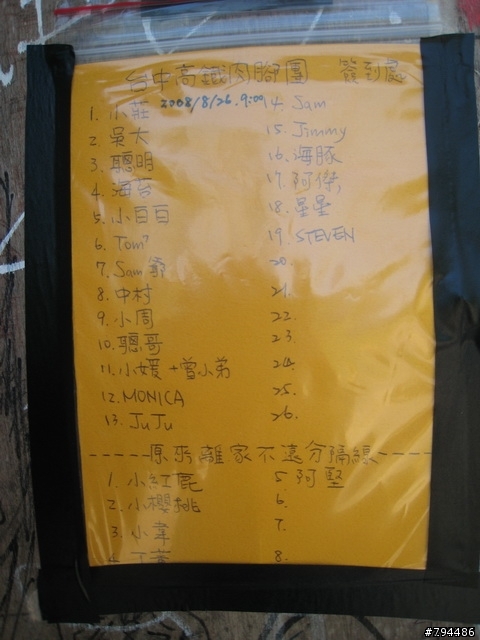 台中高鐵肉腳團 簽到處
2008/8/26. 9:00
1. 小莊
2. 吳大
3. 聰明
4. 海苔
5. 小百百
6. Tom
7. Sam爺
8. 中村
9. 小周
10. 聰哥
11. 小媛+曾小弟
12. MONICA
13. JuJu
14. Sam
15. Jimmy
16. 海豚
17. 阿傑
18. 星星
19. STEVEN
20.
21.
22.
23.
24.
25.
26.
-----原來離家不遠分隔線----
1. 小紅
2. 小櫻桃
3. 小葦
4.
5. 阿堅
6.
7.
8.
#794486